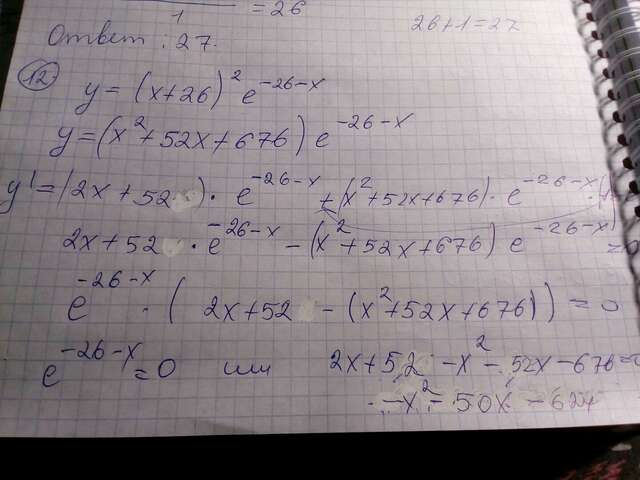 1 = 26
Ответ : 27.
26+1=27
12 y = (x+26)² e^{-26-x}
y=(x²+52x+676) e^{-26-x}
y'=(2x+52)· e^{-26-x} +(x²+52x+676)· e^{-26-x} ·(
2x+52 · e^{-26-x} - (x²+52x+676) e^{-26-x} =0
e^{-26-x} · ( 2x+52 - (x²+52x+676)) = 0
e^{-26-x} =0 или 2x+52 -x² - 52x-676=0
-x² - 50x - 624